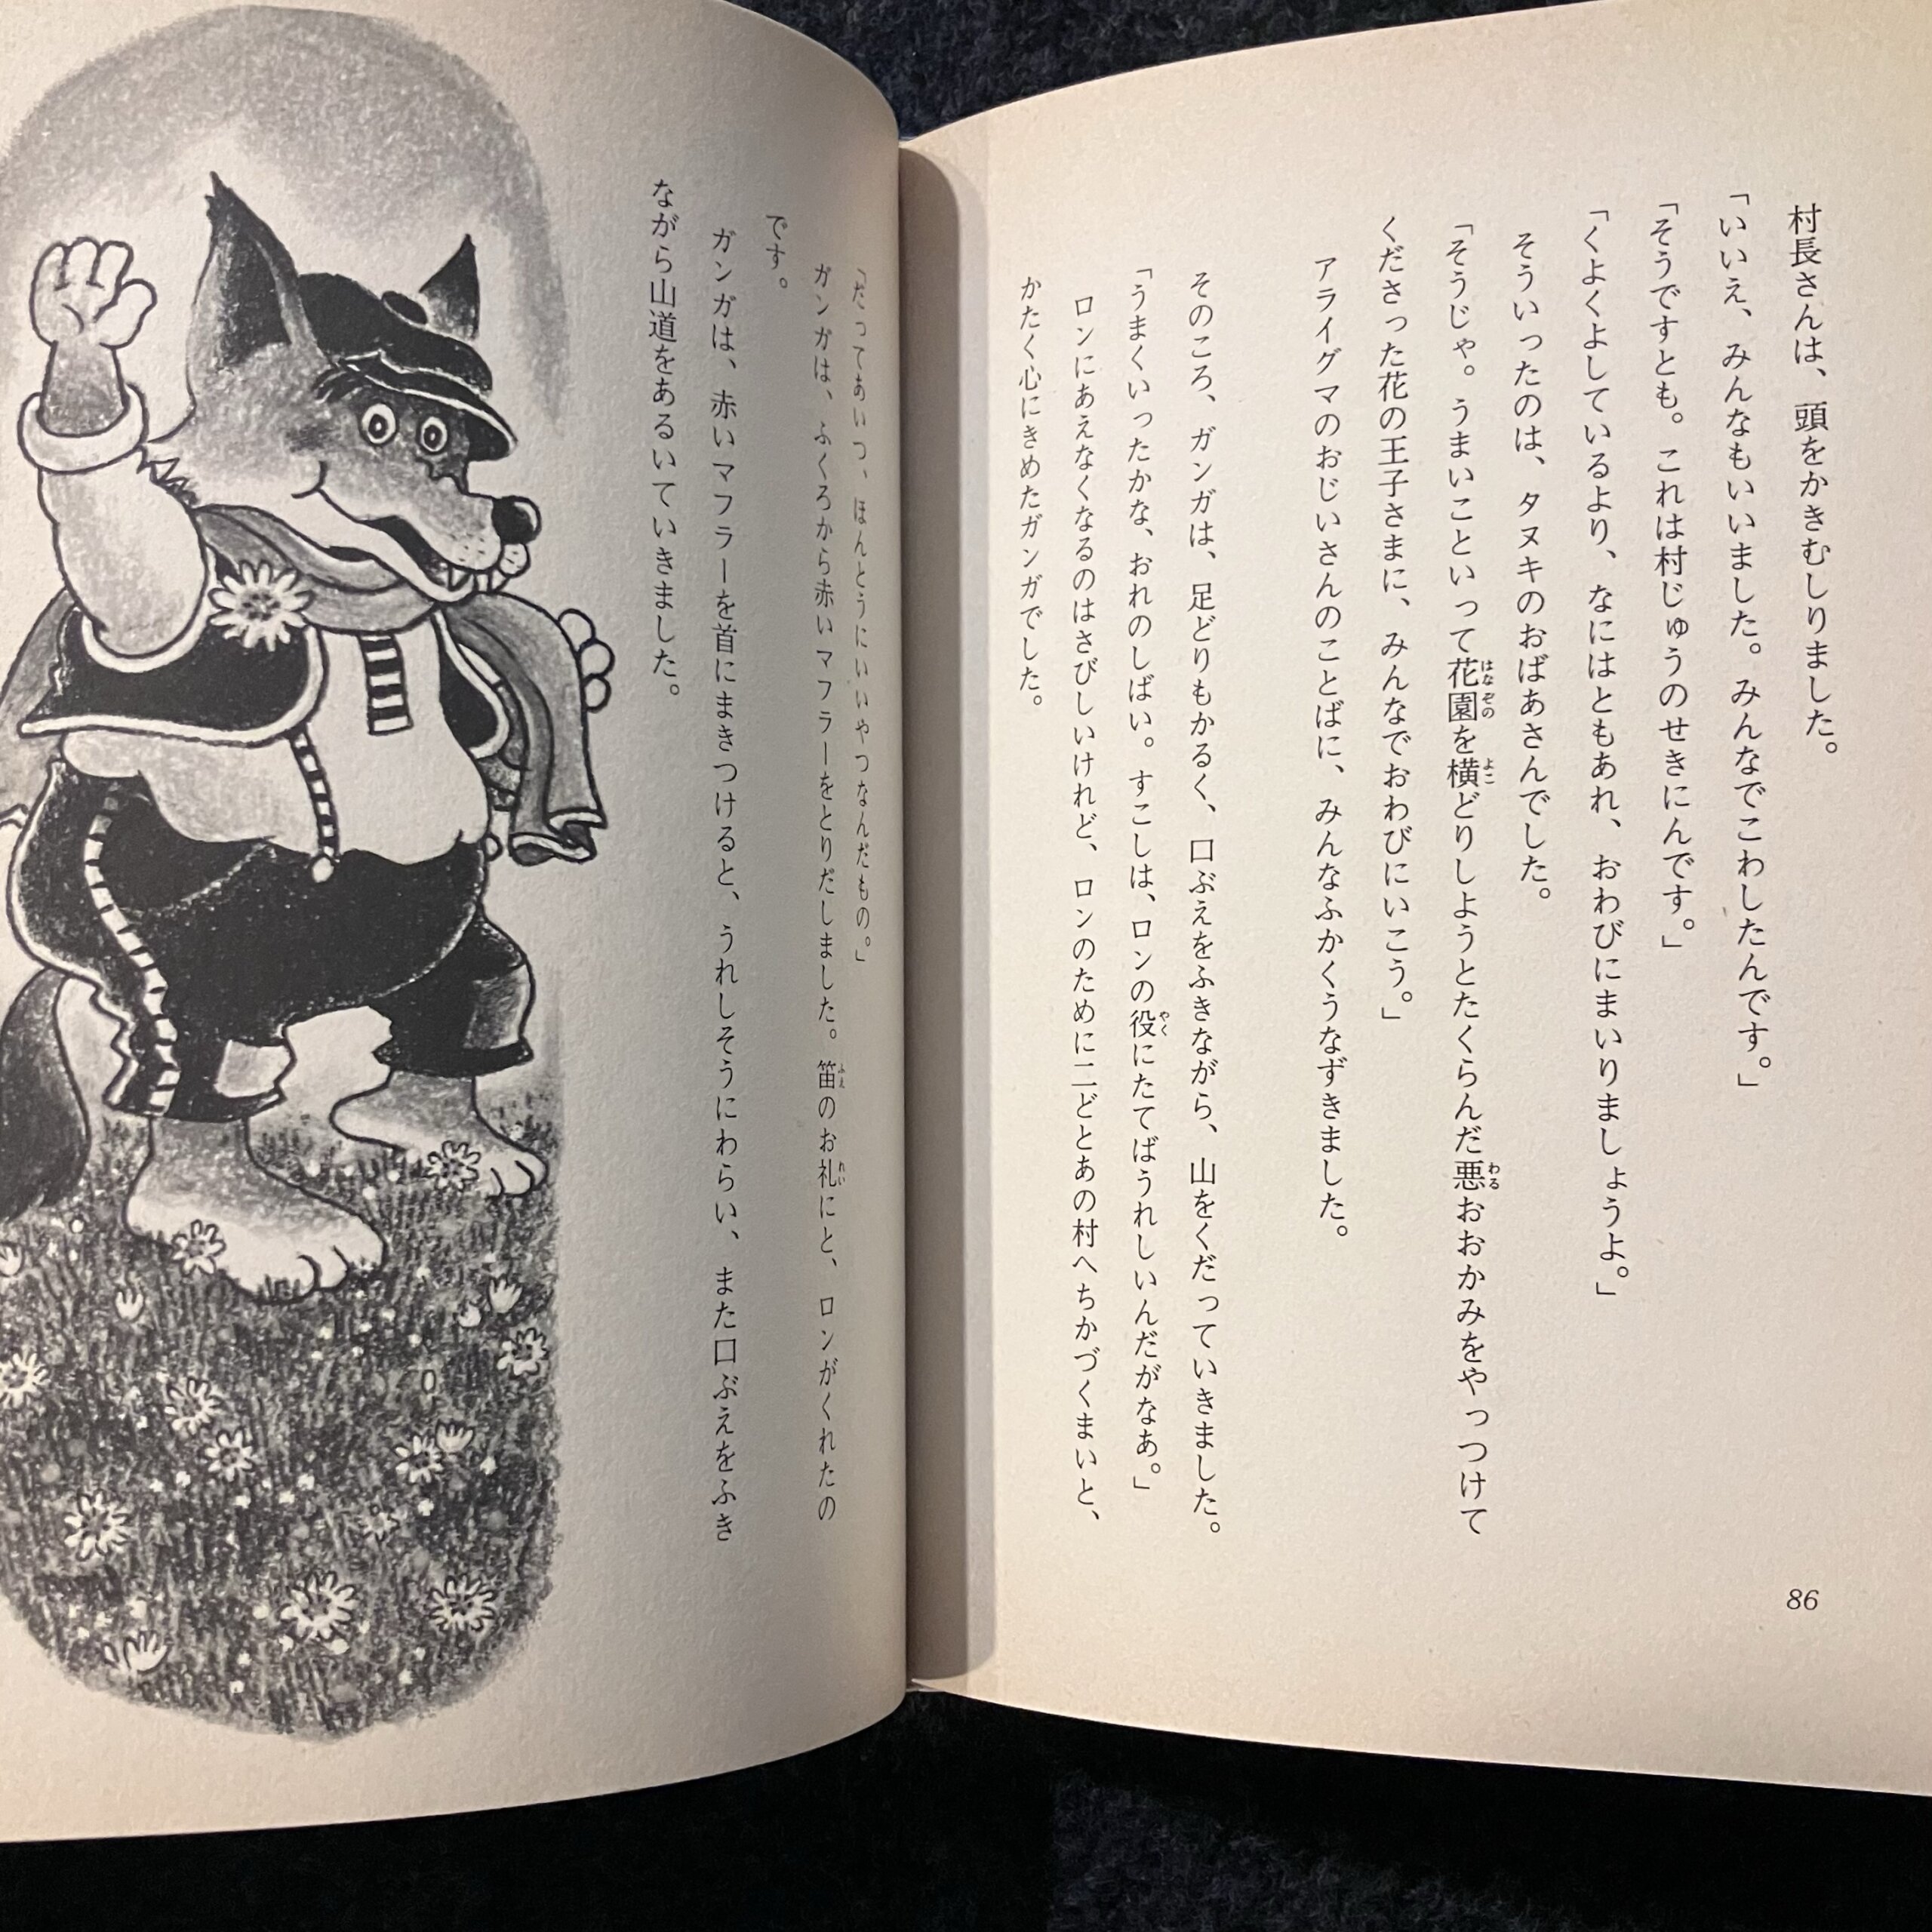 村長さんは、頭をかきむしりました。
「いいえ、みんなもいいました。みんなでこわしたんです。」
「そうですとも。これは村じゅうのせきにんです。」
「くよくよしているより、なにはともあれ、おわびにまいりましょうよ。」
そういったのは、タヌキのおばあさんでした。
「そうじゃ。うまいこといって花園を横どりしようとたくらんだ悪おおかみをやっつけて
くださった花の王子さまに、みんなでおわびにいこう。」
アライグマのおじいさんのことばに、みんなふかくうなずきました。
そのころ、ガンガは、足どりもかるく、口ぶえをふきながら、山をくだっていきました。
「うまくいったかな、おれのしばい。すこしは、ロンの役にたてばうれしいんだがなあ。」
ロンにあえなくなるのはさびしいけれど、ロンのために二どとあの村へちかづくまいと、
かたく心にきめたガンガでした。
86
「だってあいつ、ほんとうにいいやつなんだもの。」
ガンガは、ふくろから赤いマフラーをとりだしました。笛のお礼にと、ロンがくれたの
です。
ガンガは、赤いマフラーを首にまきつけると、うれしそうにわらい、また口ぶえをふき
ながら山道をあるいていきました。